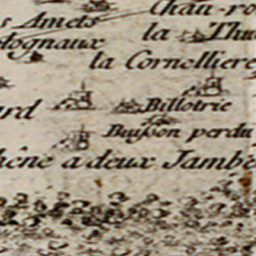 Chau-ro
s Amets
la Thu
lognaux
la Cornelliere
Billotrie
ard
Buisson perdu
hêne a deux Jambe